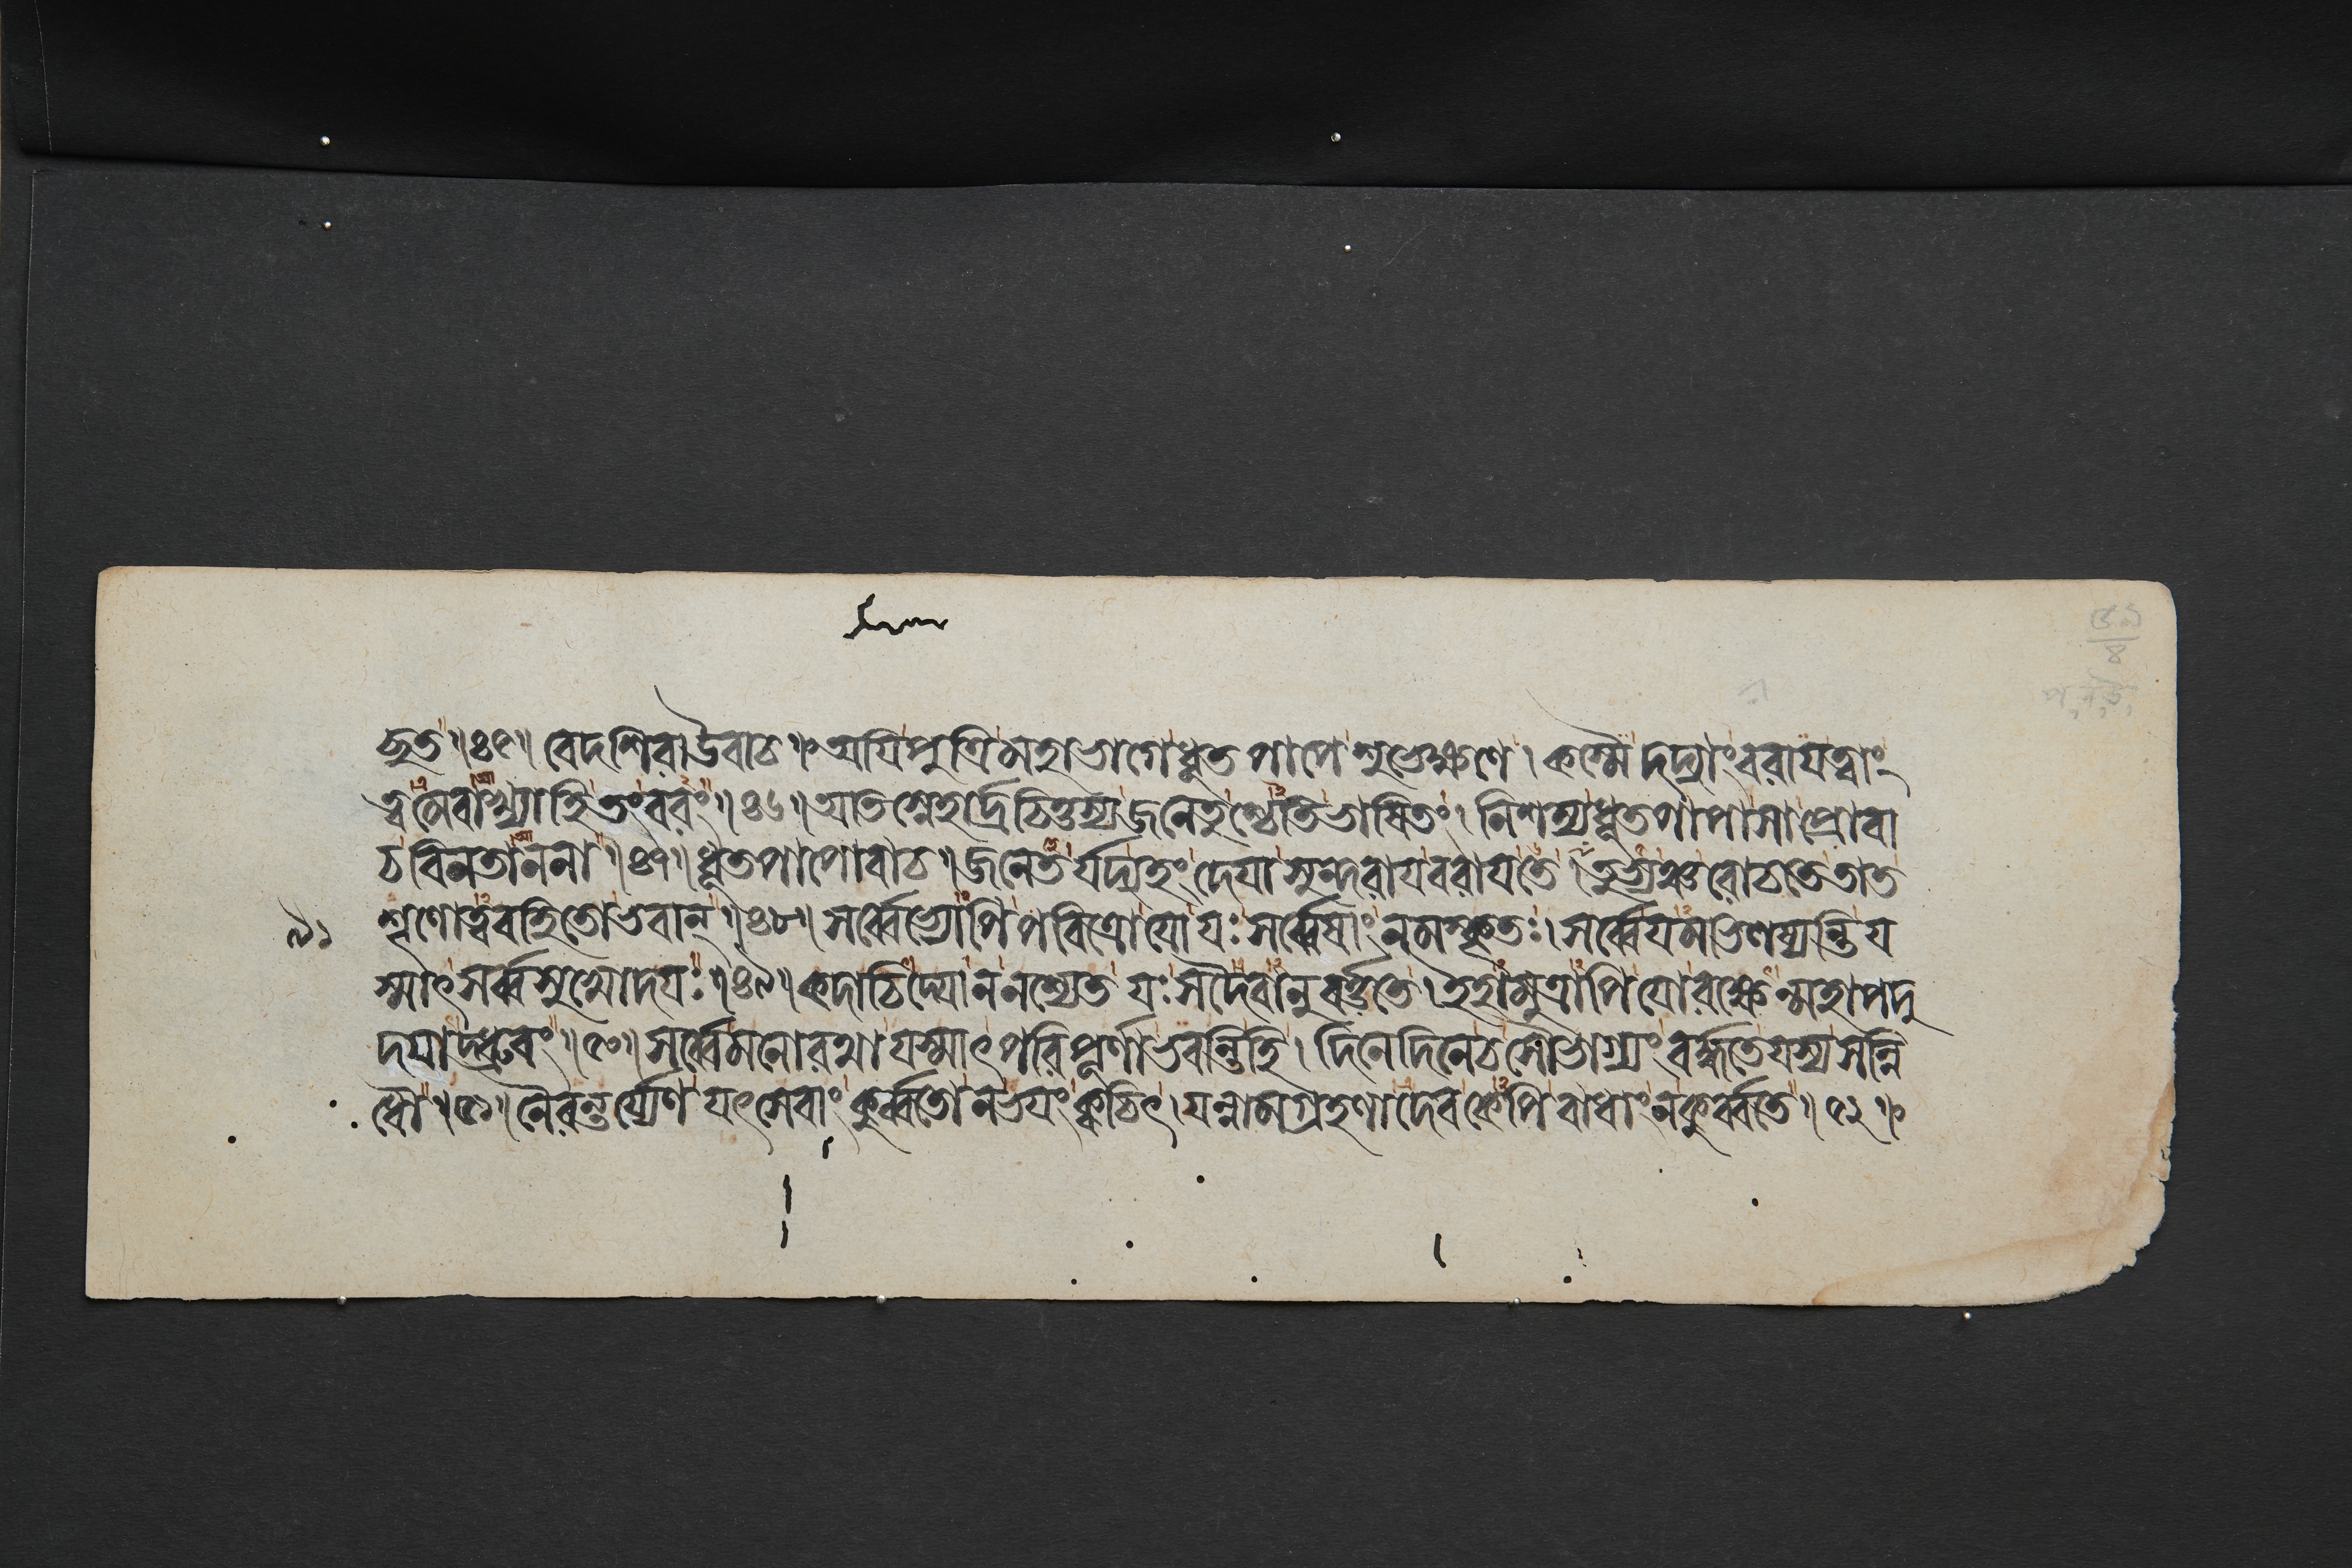 দ্ভুত ॥ ৪৫ ॥ বেদশিরা উবাচ ॥ অয়ি পুত্রি মহাভাগে ধূতপাপে শুভেক্ষণে । কস্মৈ দদ্যাং বরায় ত্বাং
ত্বমেবাখ্যাহি তং বরং ॥ ৪৬ ॥ অতিস্নেহার্দ্রচিত্তস্য জনেতুশ্চেতি ভাষিতং । নিশম্য ধূতপাপা সা প্রোবা
চ বিনতাননা ॥ ৪৭ ॥ ধূতপাপোবাচ ॥ জনেতর্যদ্যহং দেয়া সুন্দরায় বরায় তে ।
শৃণোত্ববহিতো ভবান্ ॥ ৪৮ ॥ সর্ব্বেভ্যোপি পবিত্রো যো যঃ সর্ব্বেষাং নমস্কৃতঃ । সর্ব্বে যমভিলষ্যন্তি য
স্মাৎ সর্ব্বসুখোদয়ঃ ॥ ৪৯ ॥ কদাচিদ্যো ন নশ্যেত যঃ সদৈবানুবর্ত্ততে । ইহামুত্রাপি যো রক্ষেন্মহাপদু
দয়াদ্ধ্রুবং ॥ ৫০ ॥ সর্ব্বে মনোরথা যস্মাৎ পরিপূর্ণা ভবন্তি হি । দিনে দিনে চ সৌভাগ্যং বর্দ্ধতে যস্য সন্নি
ধৌ ॥ ৫১ ॥ নৈরন্তর্য্যেণ যৎসেবাং কুর্ব্বতো ন ভয়ং ক্বচিৎ । যন্নামগ্রহণাদেব কেপি বাধাং ন কুর্ব্বতে ॥ ৫২ ॥